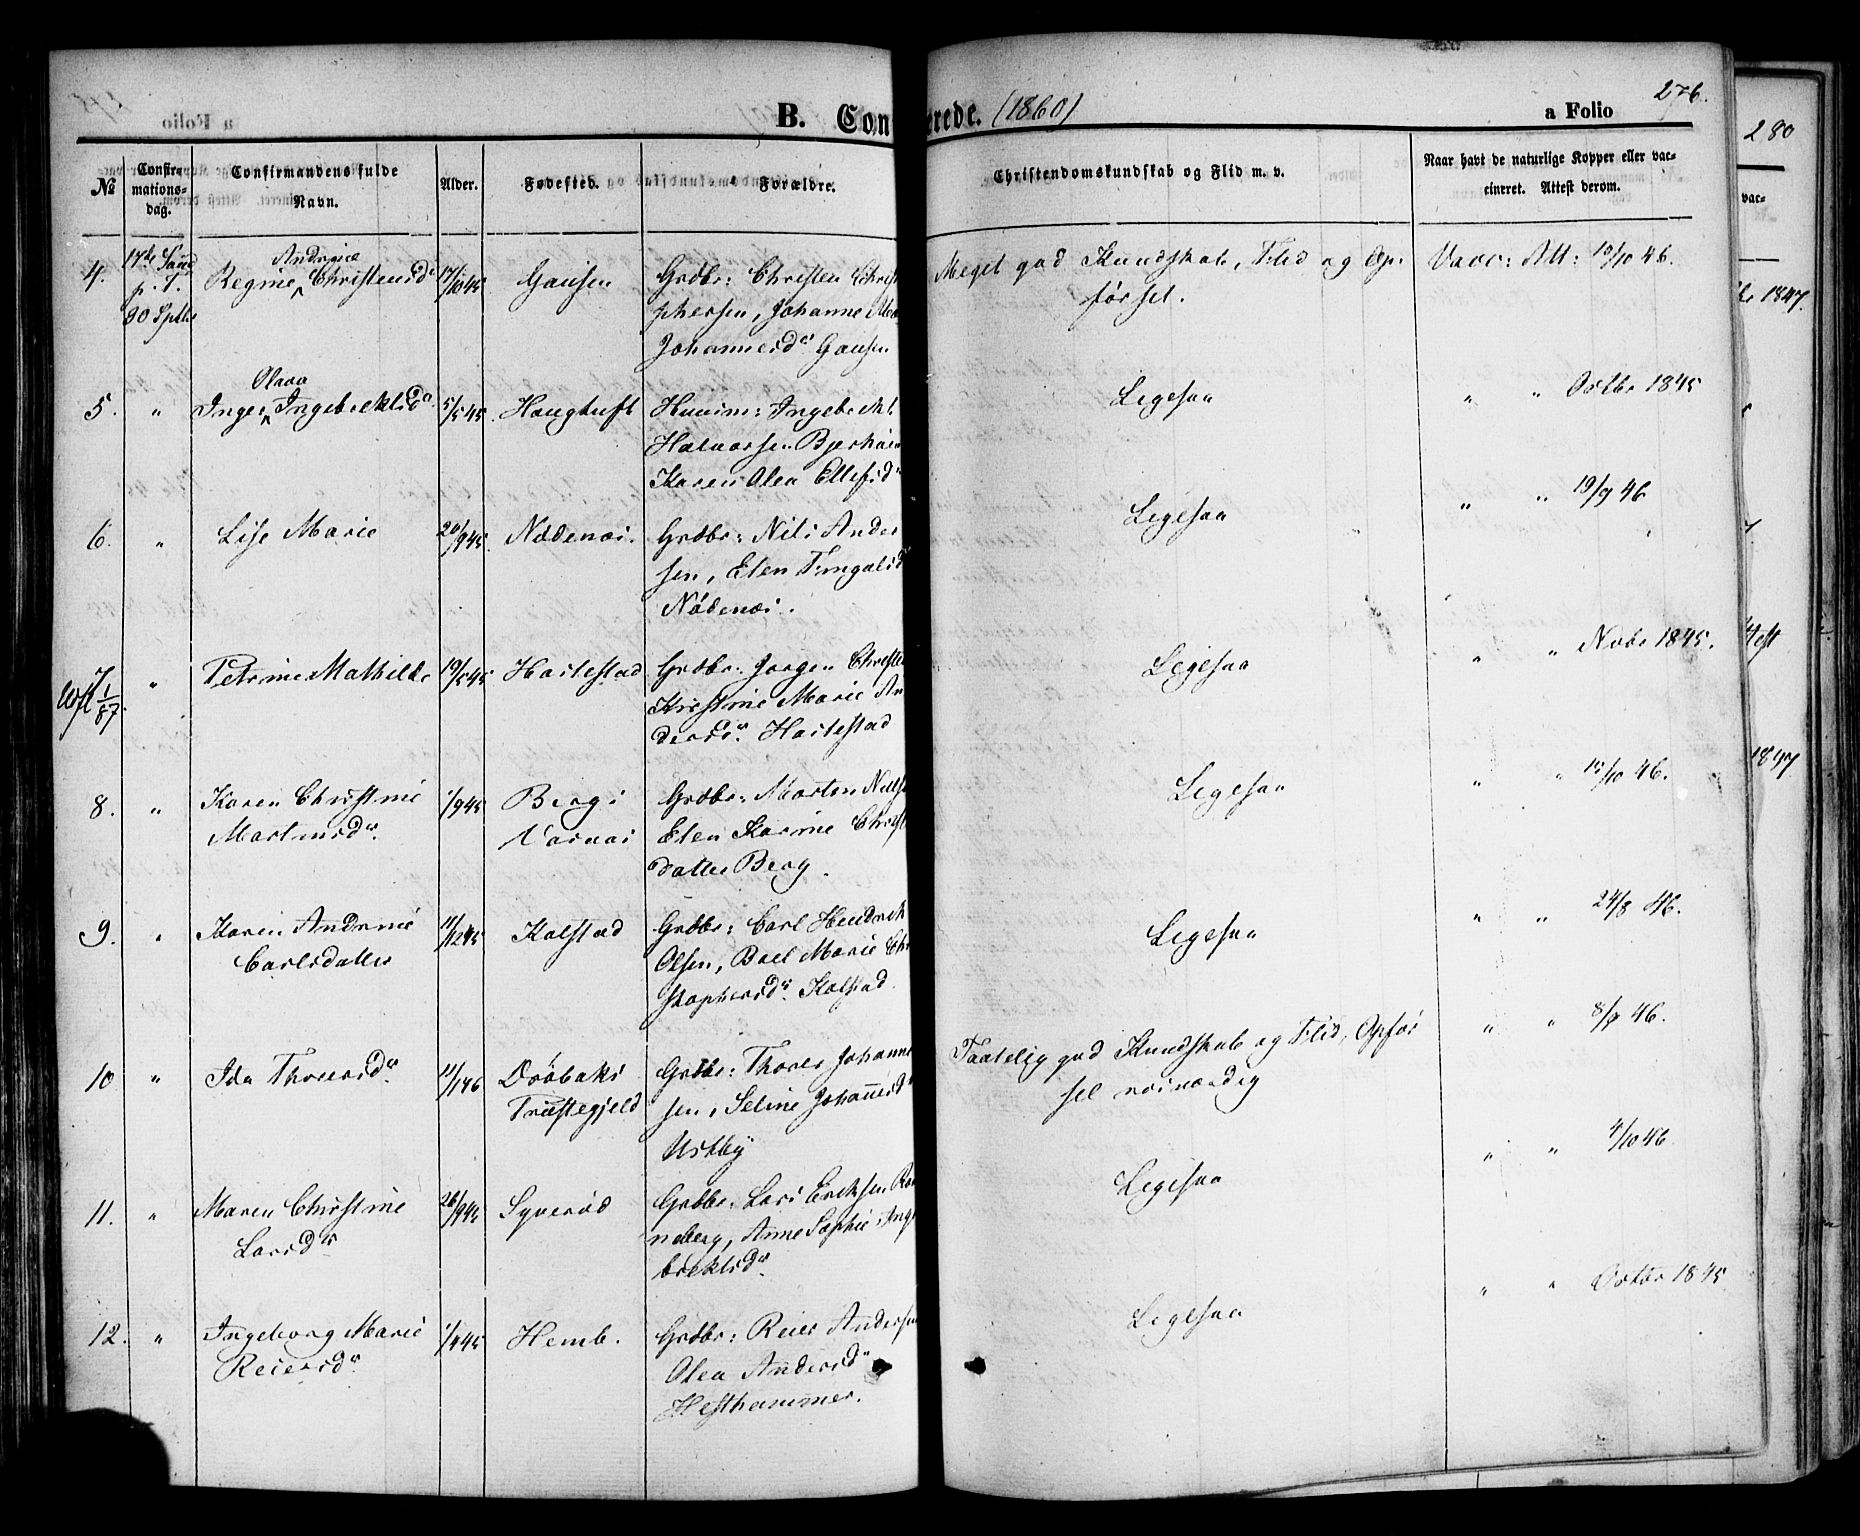 B. Con
erede. (1860)
a Folio
276.
280
№
Confir-
mations-
dag.
Confirmandens fulde
Navn.
Alder.
Fødested.
Forældre.
Christendomskundskab og Flid m. v.
Naar havt de naturlige Kopper eller vac-
cineret. Attest derom.
vac-
4.
17de Sønd
p. T.
30 Septbr
Andrine
Regine ^ Christensdr
17/10 45
Gausen
Grdbr: Christen Christ
phersen, Johanne Ma
Johannesdr Gausen
Meget god Kundskab, Flid og Op-
førsel.
Vacc: Att: 19/10 46.
1847.
5.
"
Olava
Inger ^ Ingebrektsdr
5/5 45.
Haugtuft
Huusm: Ingebrekt
Halvorsen Bjerkøen
Karen Olea Ellefsdr
Ligesaa
" " Octbr 1845
6.
"
Lise Marie
20/9 45.
Nødenæs.
Grdbr: Nils Ander
sen, Elen Fingalsd
Nødenæs.
Ligesaa
" " 19/9 46
7
1/87.
"
Petrine Mathilde
19/5 45
Hallestad
Grdbr: Jørgen Christen
Kristine Marie An
dersdr. Hallestad
Ligesaa
" " Novbr 1845.
8.
"
Karen Christine
Martinsdr.
1/9 45
Berg i
Varnæs
Grdbr: Morten Niels
Elen Karine Christ
datter Berg.
Ligesaa
" " 15/10 46.
1847
9.
"
Karen Andrine
Carlsdatter
11/12 45
Kolstad
Grdbr: Carl Hendrik
Olsen, Boel Marie Chri
stophersdr. Kolstad.
Ligesaa
" " 24/8 46.
10
"
Ida Thoresdr.
11/1 46
Drøbaks
Præstegjeld
Grdbr: Thorer Johanne
sen, Seline Johannesdr
Ustby
Taalelig god Kundskab og Flid, Opfør
sel roesværdig
" " 8/9 46.
11.
"
Maren Christine
Larsdr
26/9 45
Syverød
Grdbr: Lars Eriksen Ra
neberg, Anne Sophie Inge
brektsdr.
Ligesaa
" " 4/10 46
12.
"
Ingeborg Marie
Reiersdr
1/4 45
Hemb.
Grdbr: Reier Andersen
Olea Andersdr
Hesthammer.
Ligesaa
" " Octbr 1845